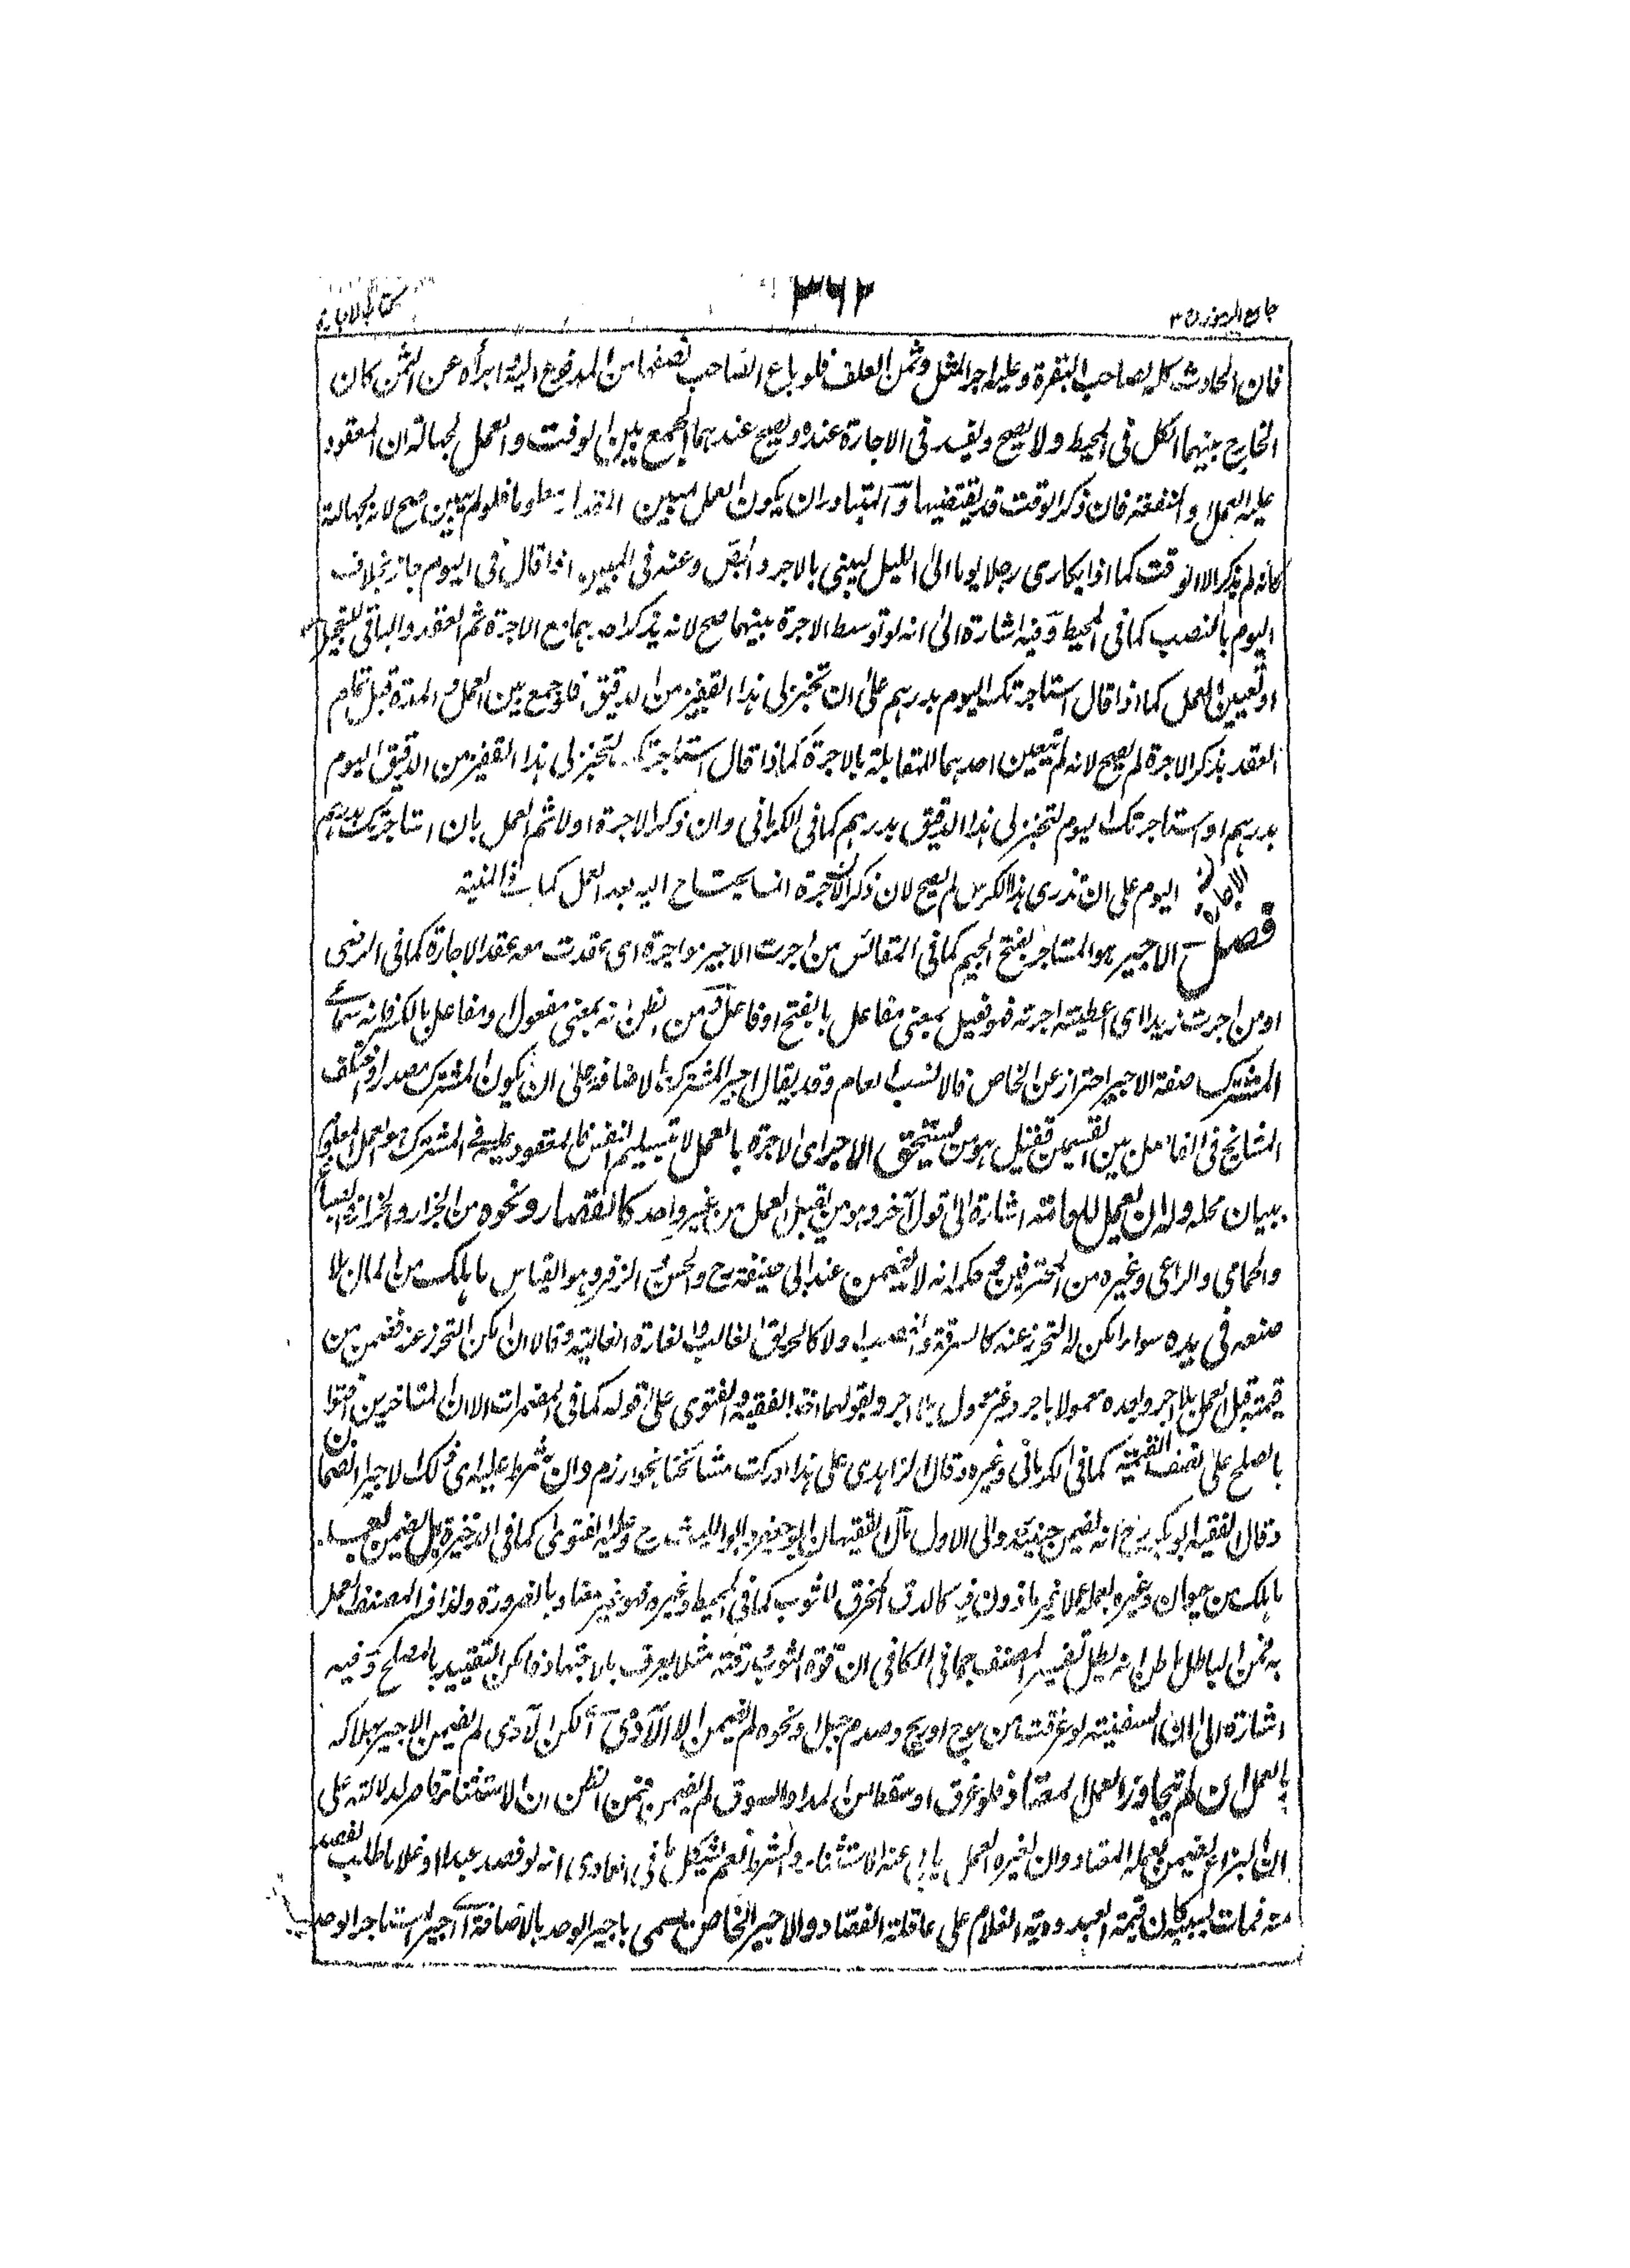 جامع الرموز ج ٣
٣٦٢
كتاب الاجارة
فان الحادث كله لصاحب البقرة وعليه اجر المثل وثمن العلف فلو باع الصاحب نصفها من المدفوع اليه وابرأه عن الثمن كان
الخارج بينهما الكل فى المحيط ولا يصح ويفسد فى الاجارة عنده ويصح عندهما الجمع بين الوقت والعمل لجهالة ان المعقود
عليه العمل والمنفعة فان ذكر الوقت قد يقتضيها والمتبادر ان يكون العمل مبين المقدار معلوما فلو لم يبين صح لانه لجهالته
كانه لم يذكر الا الوقت كما اذا يكارى رجلا يوما الى الليل ليبنى بالاجر والجص وعنده فى المبين اذا قال فى اليوم جاز بخلاف
اليوم بالنصب كما فى المحيط وفيه اشارة الى انه لو توسط الاجرة بينهما صح لانه يذكر احدهما مع الاجرة ثم العقد والباقى للتعجيل
او تعيين العمل كما اذا قال استاجرتك اليوم بدرهم على ان تخبز لى هذا القفيز من الدقيق فلو جمع بين العمل والمدة قبل تمام
العقد بذكر الاجرة لم يصح لانه لم يتعين احدهما للمقابلة بالاجرة كما اذا قال استاجرتك لتخبز لى هذا القفيز من الدقيق اليوم
بدرهم او استاجرتك اليوم لتخبز لى هذا الدقيق بدرهم كما فى الكرمانى وان ذكر الاجرة اولا ثم العمل بان استاجرتك بدرهم
اليوم على ان تذرى هذا الكرس لم يصح لان ذكر الاجرة انما يحتاج اليه بعد العمل كما فى المنية
فصل الاجير هو المستاجر بفتح الجيم كما فى المقائس من اجرت الاجير مواجرة اى عقدت معه عقد الاجارة كما فى الرضى
او من اجرت زيدا اى اعطيته اجرته فهو فعيل بمعنى مفاعل بالفتح او فاعل ومن الظن انه بمعنى مفعول او مفاعل بالكسر فانه سماعى
المشترك صفة الاجير احتراز عن الخاص فالانسب العام وقد يقال اجير المشترك بالاضافة على ان يكون المشترك مصدرا واختلف
المشايخ فى الفاصل بين القسمين فقيل هو من يستحق الاجر اى الاجرة بالعمل لا بتسليم النفس فالمعقود عليه فى المشترك هو العمل المعلوم
ببيان محله وله ان يعمل للعامة اشارة الى قول آخر وهو من يقبل العمل من غير واحد كالقصار ونحوه من الجزار والخراز
والحمامى والراعى وغيره من المحترفين وحكمه انه لا يضمن عند ابى حنيفة رح والحسن والزفر وهو القياس ما هلك من المال بلا
صنعه فى يده سواء امكن له التحرز عنه كالسرقة والغصب او لا كالحريق الغالب والغارة الغالبة وقالا ان امكن التحرز عنه فضمن من
قيمته قبل العمل بلا اجر وبعده معمولا باجر وغير معمول بلا اجر وبقولهما اخذ الفقيه والفتوى على قوله كما فى المضمرات الا ان المتاخرين افتوا
بالصلح على نصف القيمة كما فى الكرمانى وغيره وقال الزاهدى على هذا ادركت مشائخنا بخوارزم وان شرط عليه اى على ذلك الاجير الضمان
وقال الفقيه ابو بكر رح انه يضمن حينئذ والى الاول مال الفقيهان ابو جعفر وابو الليث رح وعليه الفتوى كما فى الذخيرة بل يضمن
ما هلك من حيوان وغيره بعمله عملا غير ماذون فيه كالدق المخرق للثوب كما فى المحيط وغيره فهو غير معتاد بالضرورة ولذا فسر المصنف العمل
به فمن الباطل الظن انه بطل تفسير المصنف بما فى الكافى ان قوة الثوب ورقته مثلا يعرف بالاجتهاد فامكن التقييد بالمصلح وفيه
اشارة الى ان السفينة لو غرقت من موج او ريح وصدم جبل او نحوه لم يضمن الا الآدمى لكن الآدمى لم يضمن الاجير بهلاكه
بالعمل ان لم يتجاوز العمل المعتاد فلو غرق او سقط من المد او السوق لم يضمن فمن الظن ان الاستثناء قاصر لدلالته على
ان البزاغ يضمن بعمله المعتاد وان لغيره العمل يابى عنه الاستثناء والشرط نعم اشكل ما فى العمادى انه لو فصد عبدا او غلاما طالب الفصد
منه فمات لسببه كان قيمة العبد ودية الغلام على عاقلة الفصاد والاجير الخاص يسمى باجير الوحد بالاضافة اى اجير المستاجر الوحد